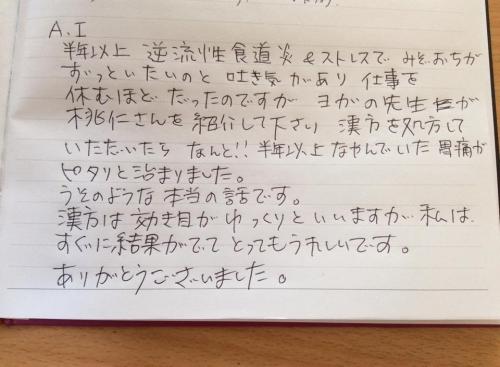 A.I
半年以上 逆流性食道炎 & ストレスで みぞおちが
ずっといたいのと 吐き気があり 仕事を
休むほど だったのですが ヨガの先生が
桃仁さんを 紹介して下さり 漢方を処方して
いただいたら なんと!! 半年以上なやんでいた 胃痛が
ピタリと治まりました。
うそのような 本当の話です。
漢方は 効き目が ゆっくりと いいますが 私は
すぐに結果がでて とってもうれしいです。
ありがとうございました。